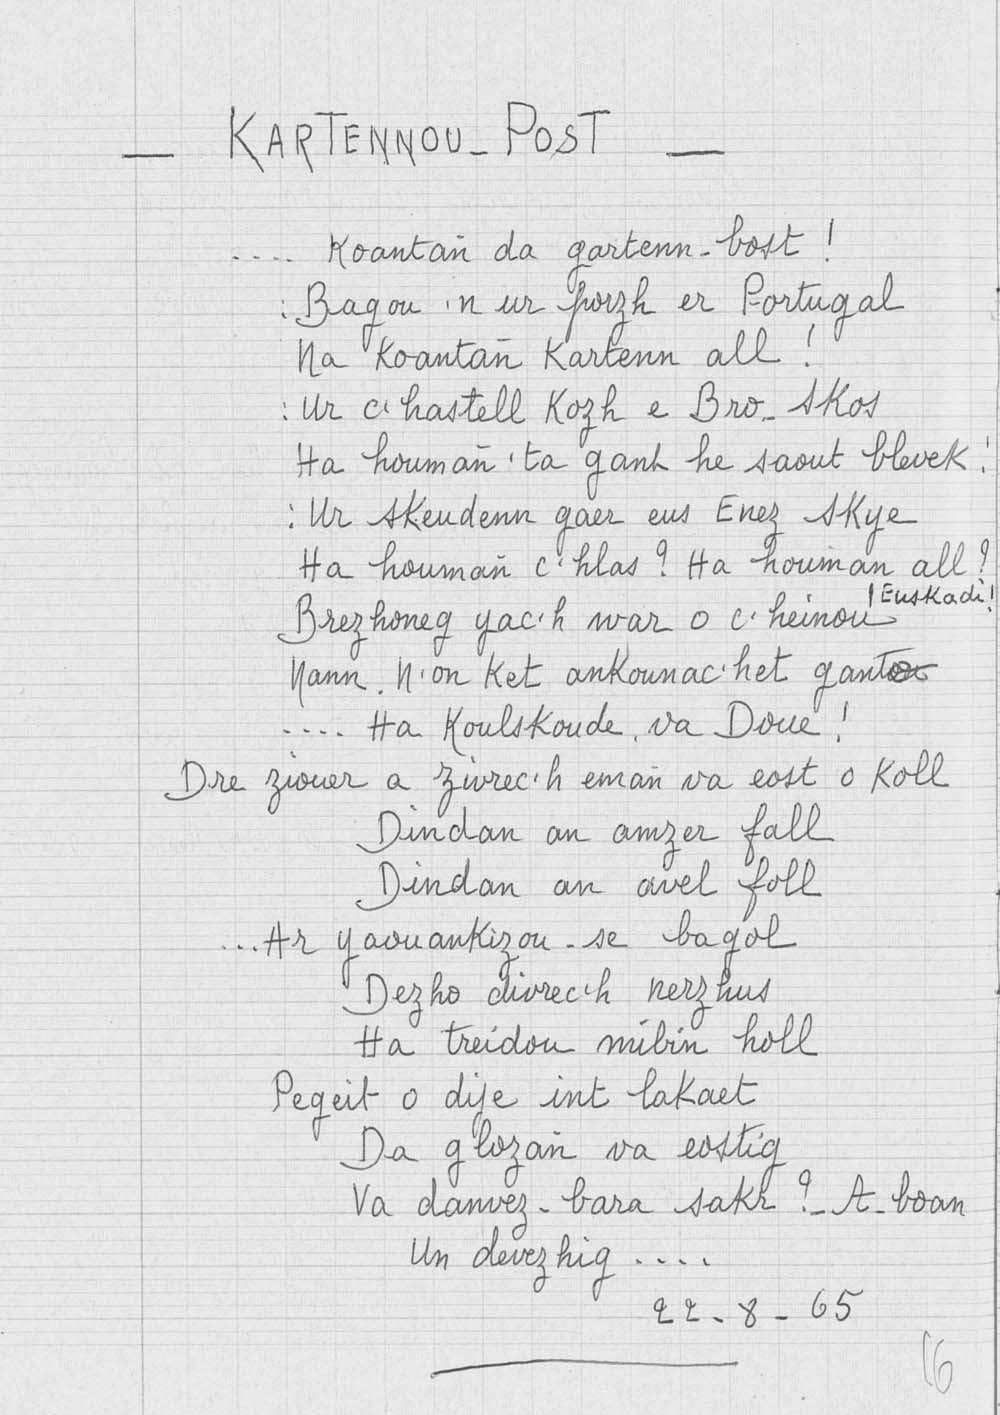 — KARTENNOU-POST —
.... Koantañ da gartenn-bost !
: Bagou 'n ur porzh er Portugal
Na Koantañ Kartenn all !
: Ur c'hastell Kozh e Bro-Skos
Ha houmañ 'ta gant he saout blevek !
: Ur skeudenn gaer eus Enez Skye
Ha houmañ c'hlas ? Ha houman all ?
! Euskadi !
Brezhoneg yac'h war o c'heinou
Nann. N'on Ket ankounac'het ganto
.... Ha Koulskoude, va Doue !
Dre ziouer a zivrec'h emañ va eost o Koll
Dindan an amzer fall
Dindan an avel foll
... Ar yaouankizou-se bagol
Dezho divrec'h nerzhus
Ha treidou mibin holl
Pegeit o dije int lakaet
Da glozañ va eostig
Va danvez-bara sakr ?- A-boan
Un devezhig ....
22-8-65
16